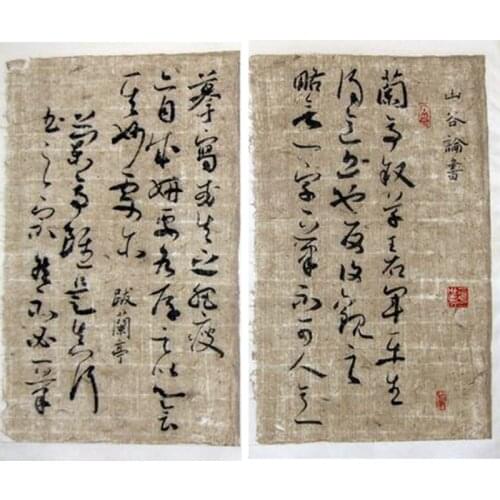 山谷論書
蘭亭敘草王右軍平生
得意書也反復觀之
略無一字一筆不可人意
摹寫或失之肥瘦
亦自成妍要各存之以心會
其妙處尔
跋蘭亭
蘭亭雖是真行
書之宗然不必一筆